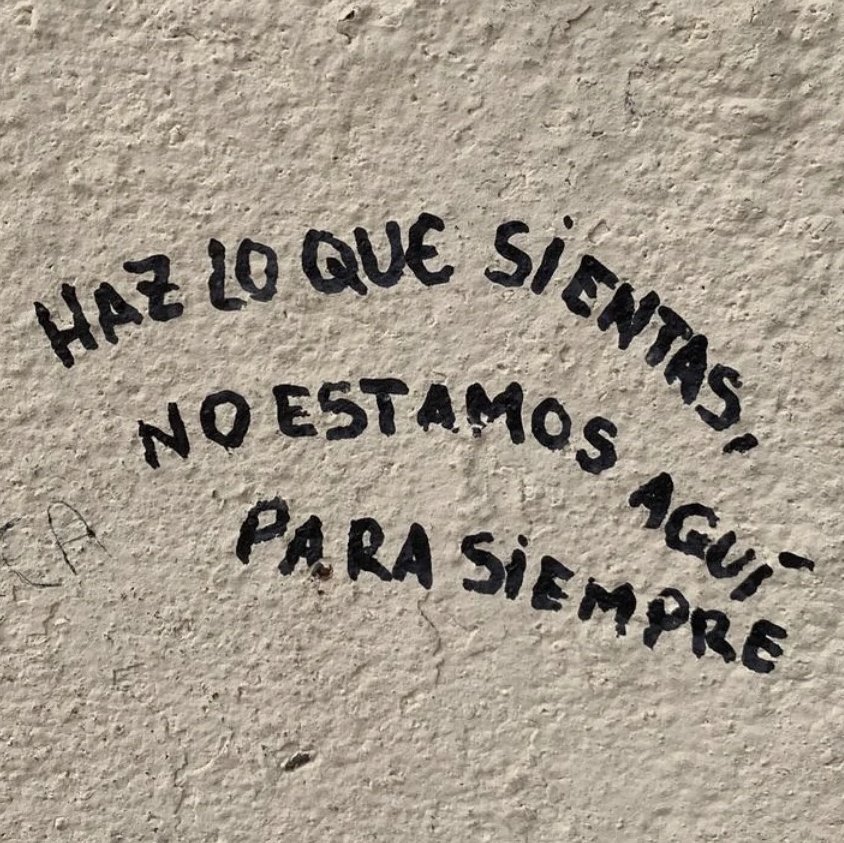 HAZ LO QUE SiENTAS,
NO ESTAMOS AQUÍ
PARA SiEMPRE
CA